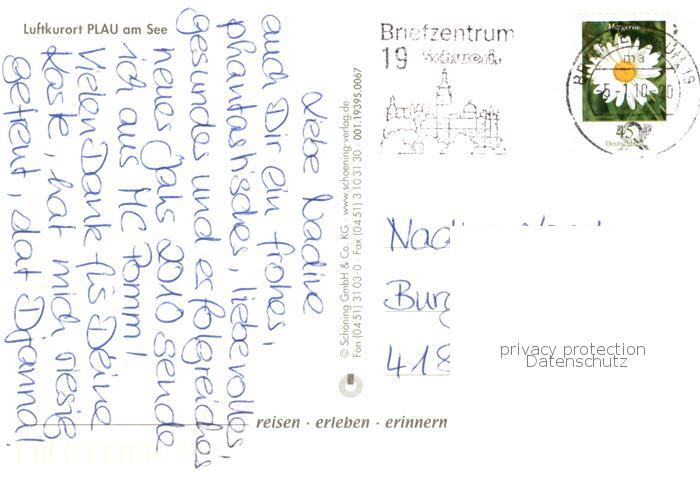 Luftkurort PLAU am See
Liebe Nadine
auch Dir ein frohes,
phantastisches, liebevolles,
gesundes und erfolgreiches
neues Jahr 2010 sende
ich aus MC Pomm!
Vielen Dank für Deine
Karte, hat mich riesig
gefreut,
© Schöning GmbH & Co. KG · www.schoening-verlag.de
Fon (04 51) 31 03-0 · Fax (04 51) 3 10 31 30 · 001.19395.0067
reisen · erleben · erinnern
Briefzentrum
19
Margerite
45
Deutschland
privacy protection
Datenschutz